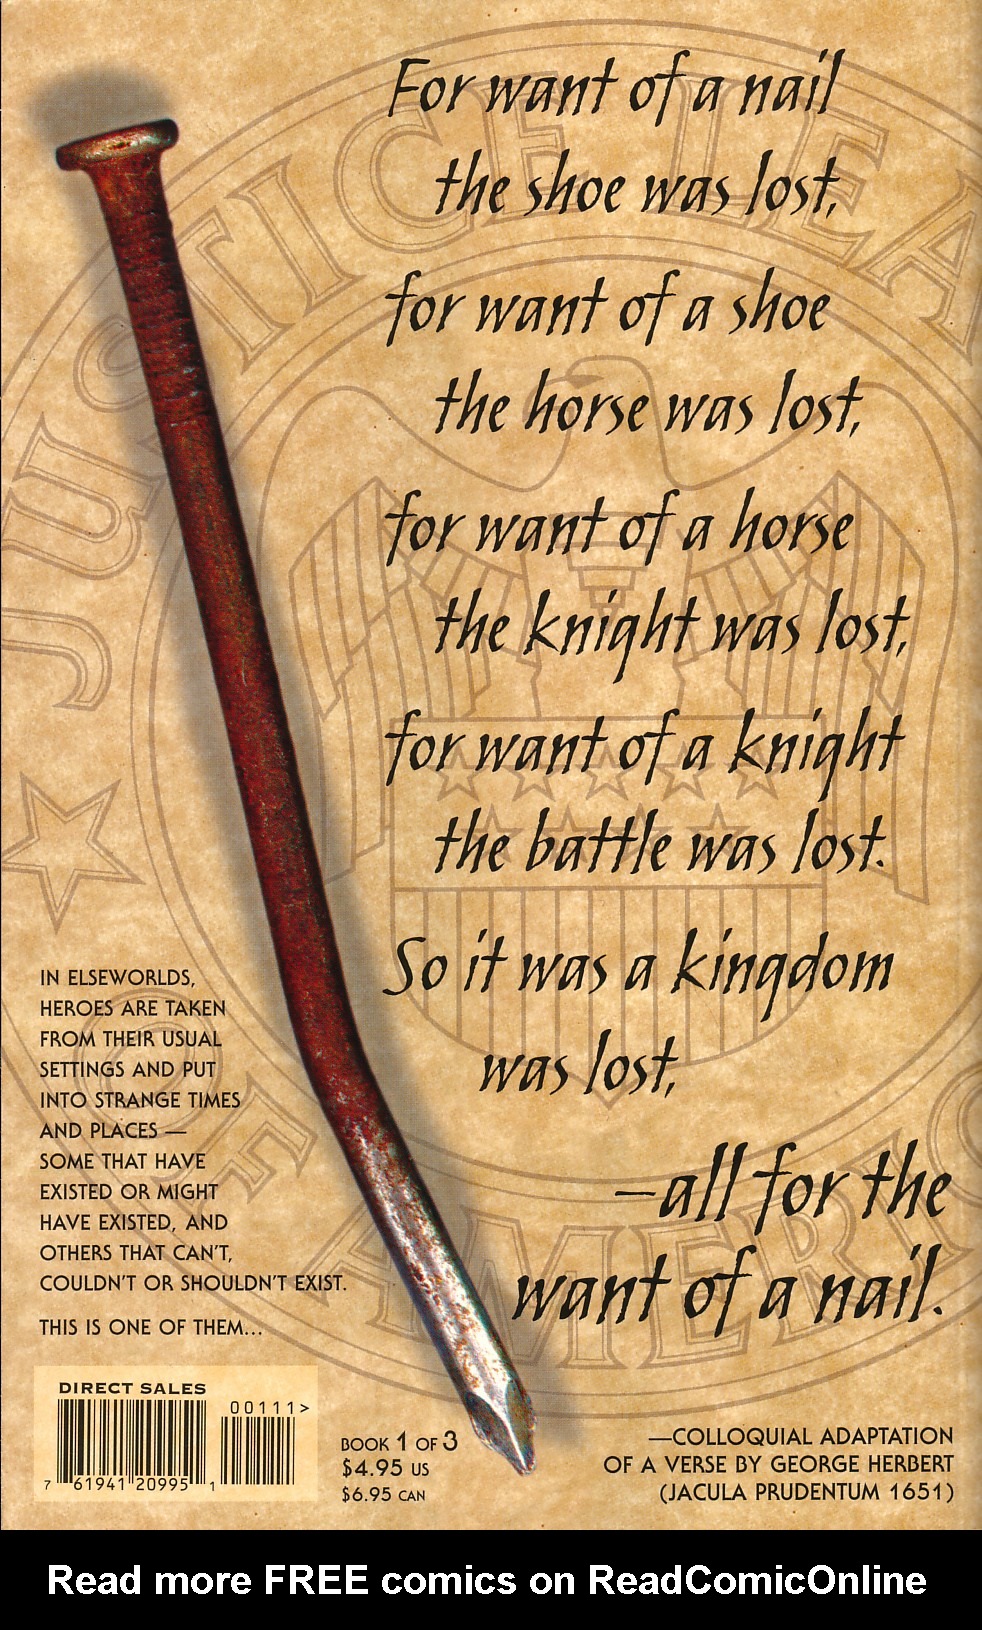 For want of a nail
the shoe was lost,
for want of a shoe
the horse was lost,
for want of a horse
the knight was lost,
for want of a knight
the battle was lost.
So it was a kingdom
was lost,
—all for the
want of a nail.
JUSTICE LEA
OF AMERIC
IN ELSEWORLDS,
HEROES ARE TAKEN
FROM THEIR USUAL
SETTINGS AND PUT
INTO STRANGE TIMES
AND PLACES —
SOME THAT HAVE
EXISTED OR MIGHT
HAVE EXISTED, AND
OTHERS THAT CAN'T,
COULDN'T OR SHOULDN'T EXIST.
THIS IS ONE OF THEM...
DIRECT SALES
00111>
7 61941 20995 1
BOOK 1 OF 3
$4.95 US
$6.95 CAN
—COLLOQUIAL ADAPTATION
OF A VERSE BY GEORGE HERBERT
(JACULA PRUDENTUM 1651)
Read more FREE comics on ReadComicOnline